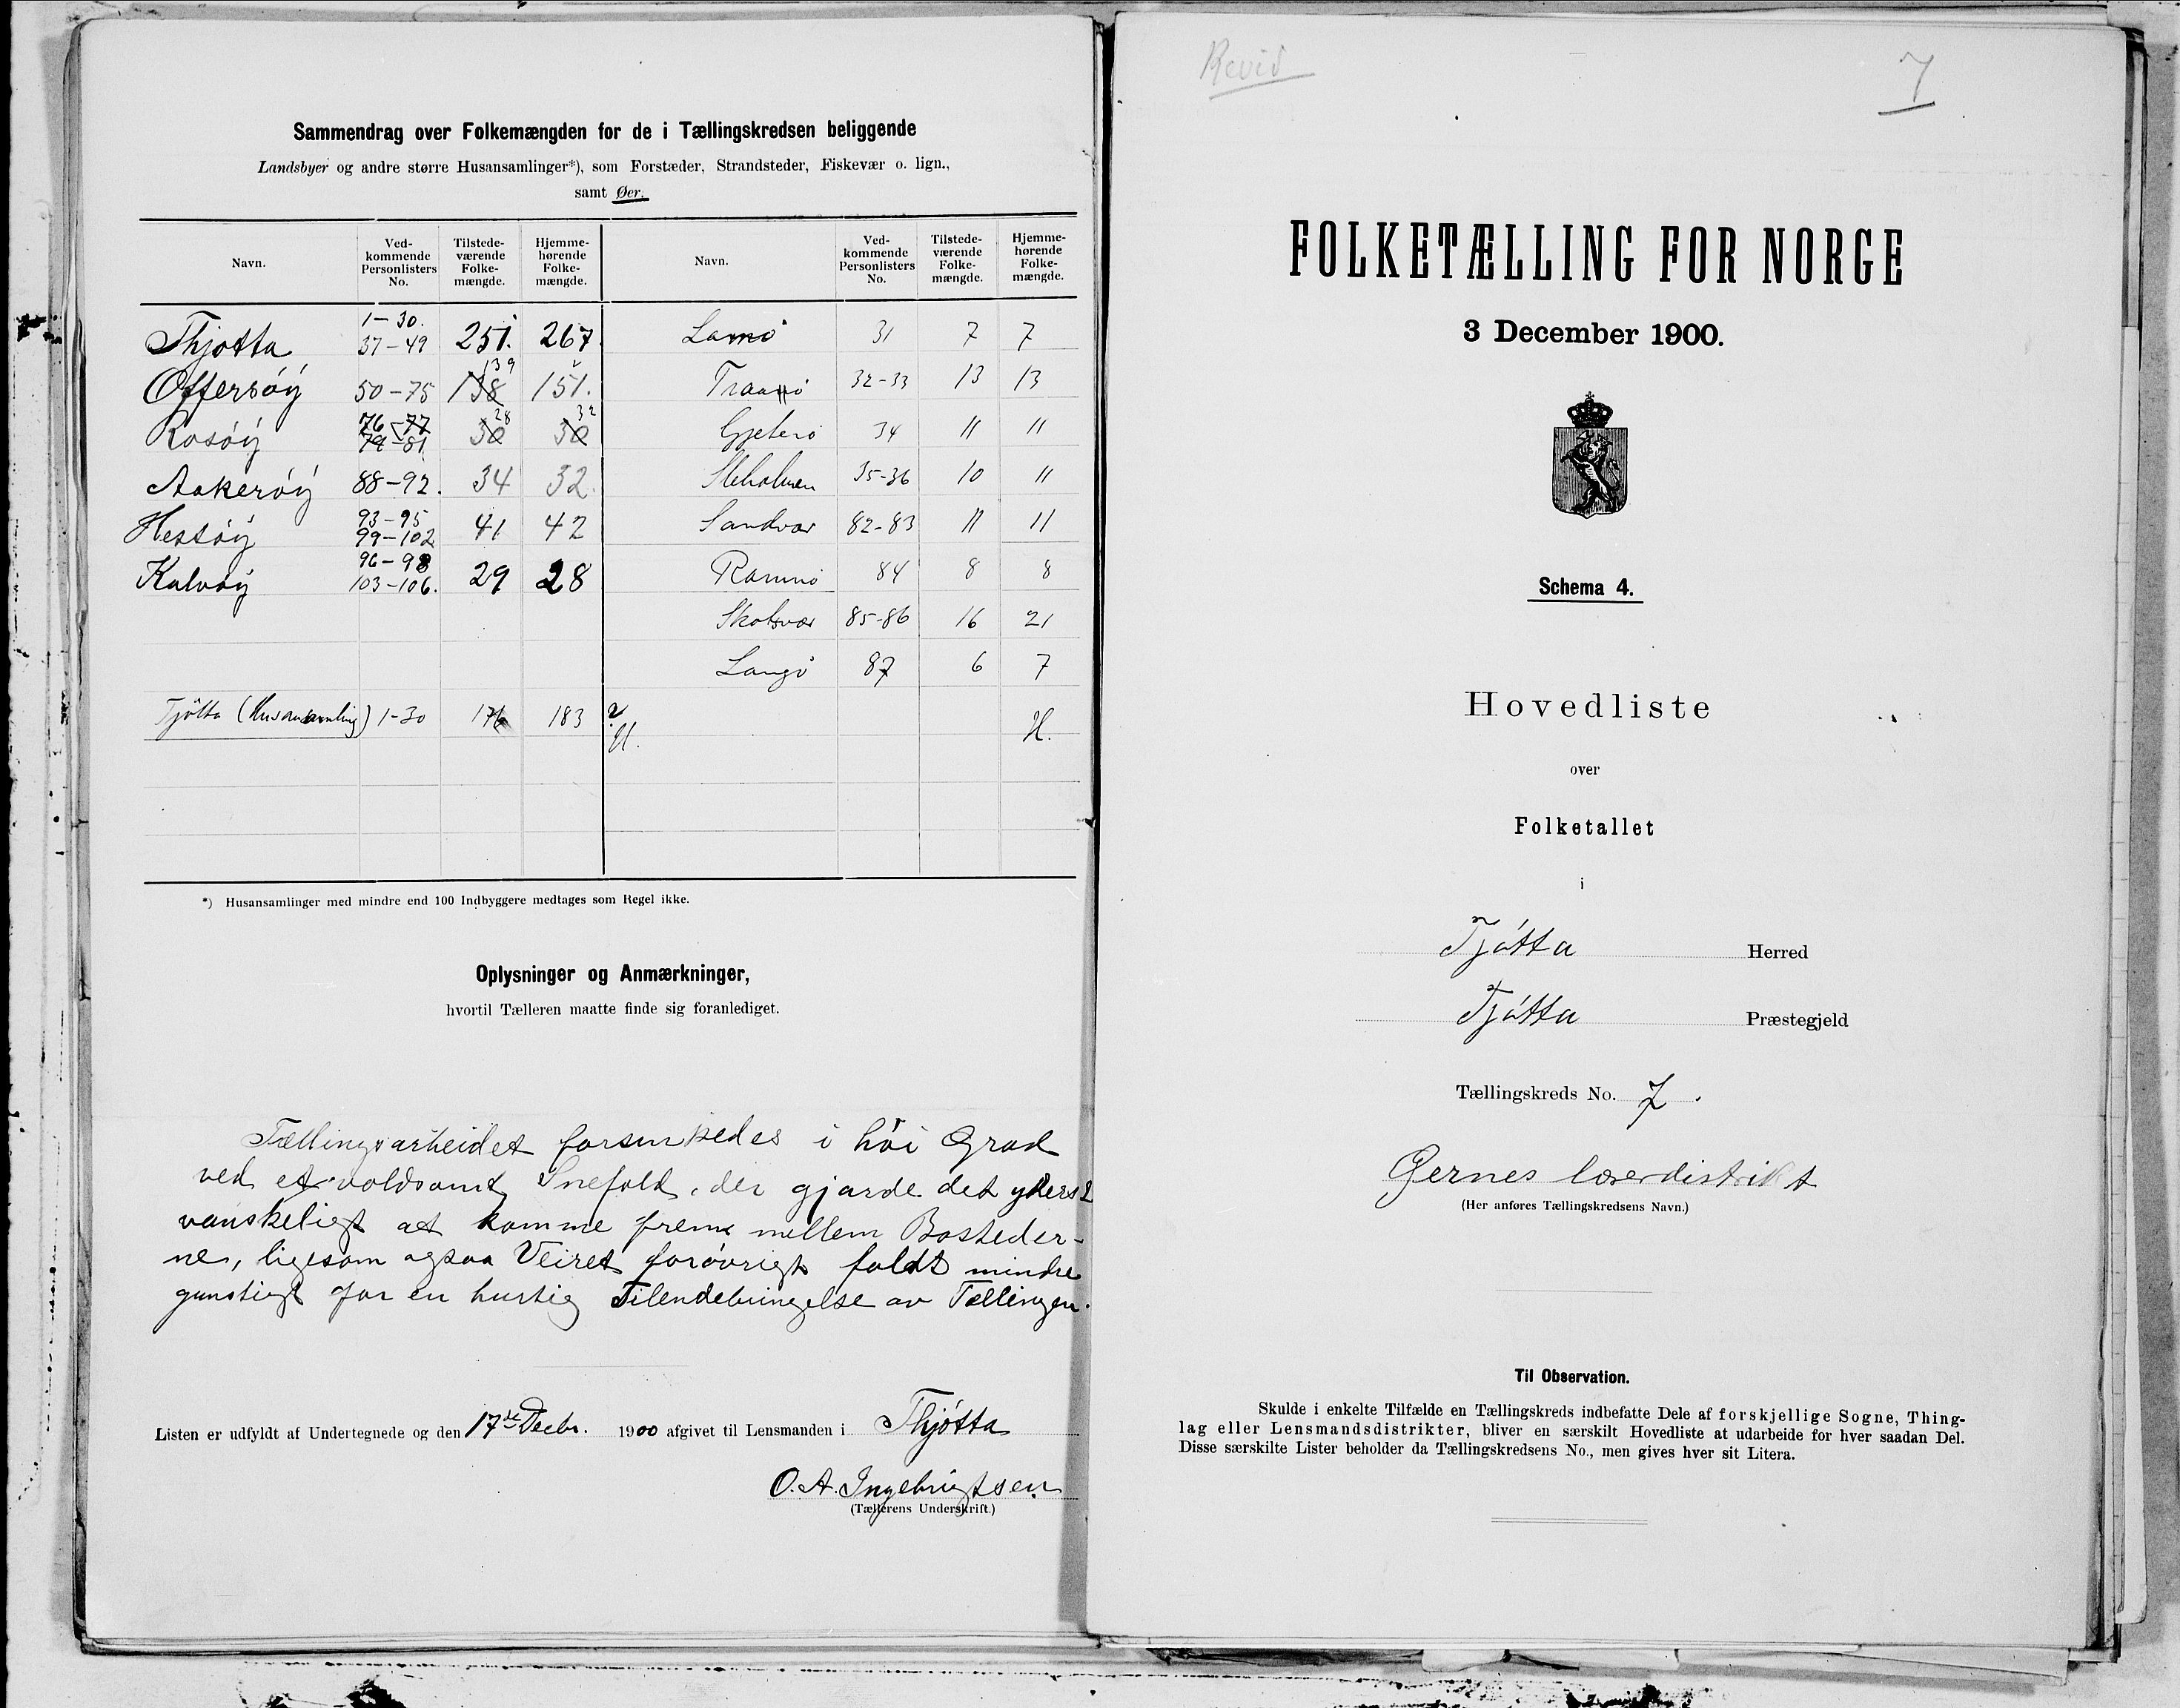 Sammendrag over Folkemængden for de i Tællingskredsen beliggende
Landsbyer og andre større Husansamlinger*), som Forstæder, Strandsteder, Fiskevær o. lign.,
samt Øer.
Navn. Ved-kommende Personlisters No. Tilstede-værende Folke-mængde. Hjemme-hørende Folke-mængde. Navn. Ved-kommende Personlisters No. Tilstede-værende Folke-mængde. Hjemme-hørende Folke-mængde.
Thjotta 1-30. 37-49 251. 267. Lamö 31 7 7
Offersöÿ 50-75 138 139 151. Traanö 32-33 13 13
Rosöÿ 76-77 79-81 30 28 30 32 Gjeterö 34 11 11
Aakeröÿ 88-92. 34 32. Stiholmen 35-36 10 11
Hestöÿ 93-95 99-102 41 42 Sandvær 82-83 11 11
Kalvöÿ 96-98 103-106. 29 28 Ramnö 84 8 8
Skotsvær 85-86 16 21
Langö 87 6 7
Tjötta (Husansamling) 1-30 176 183 H.
H.
*) Husansamlinger med mindre end 100 Indbyggere medtages som Regel ikke.
Oplysninger og Anmærkninger,
hvortil Tælleren maatte finde sig foranlediget.
Tællingsarbeidet forsinkedes i höi Grad
ved et voldsomt Snefald, der gjorde det yderst
vanskeligt at komme frem mellem Bosteder-
ne, ligesom ogsaa Veiret forövrigt faldt mindre
gunstigt for en hurtig Tilendebringelse av Tællingen.
Listen er udfyldt af Undertegnede og den 17de Decbr. 1900 afgivet til Lensmanden i Thjötta
O. A. Ingebrigtsen
(Tællerens Underskrift.)
Revid
7
FOLKETÆLLING FOR NORGE
3 December 1900.
Schema 4.
Hovedliste
over
Folketallet
i
Tjötta Herred
Tjötta Præstegjeld
Tællingskreds No. 7.
Gernes læserdistrikt
(Her anføres Tællingskredsens Navn.)
Til Observation.
Skulde i enkelte Tilfælde en Tællingskreds indbefatte Dele af forskjellige Sogne, Thing-
lag eller Lensmandsdistrikter, bliver en særskilt Hovedliste at udarbeide for hver saadan Del.
Disse særskilte Lister beholder da Tællingskredsens No., men gives hver sit Litera.